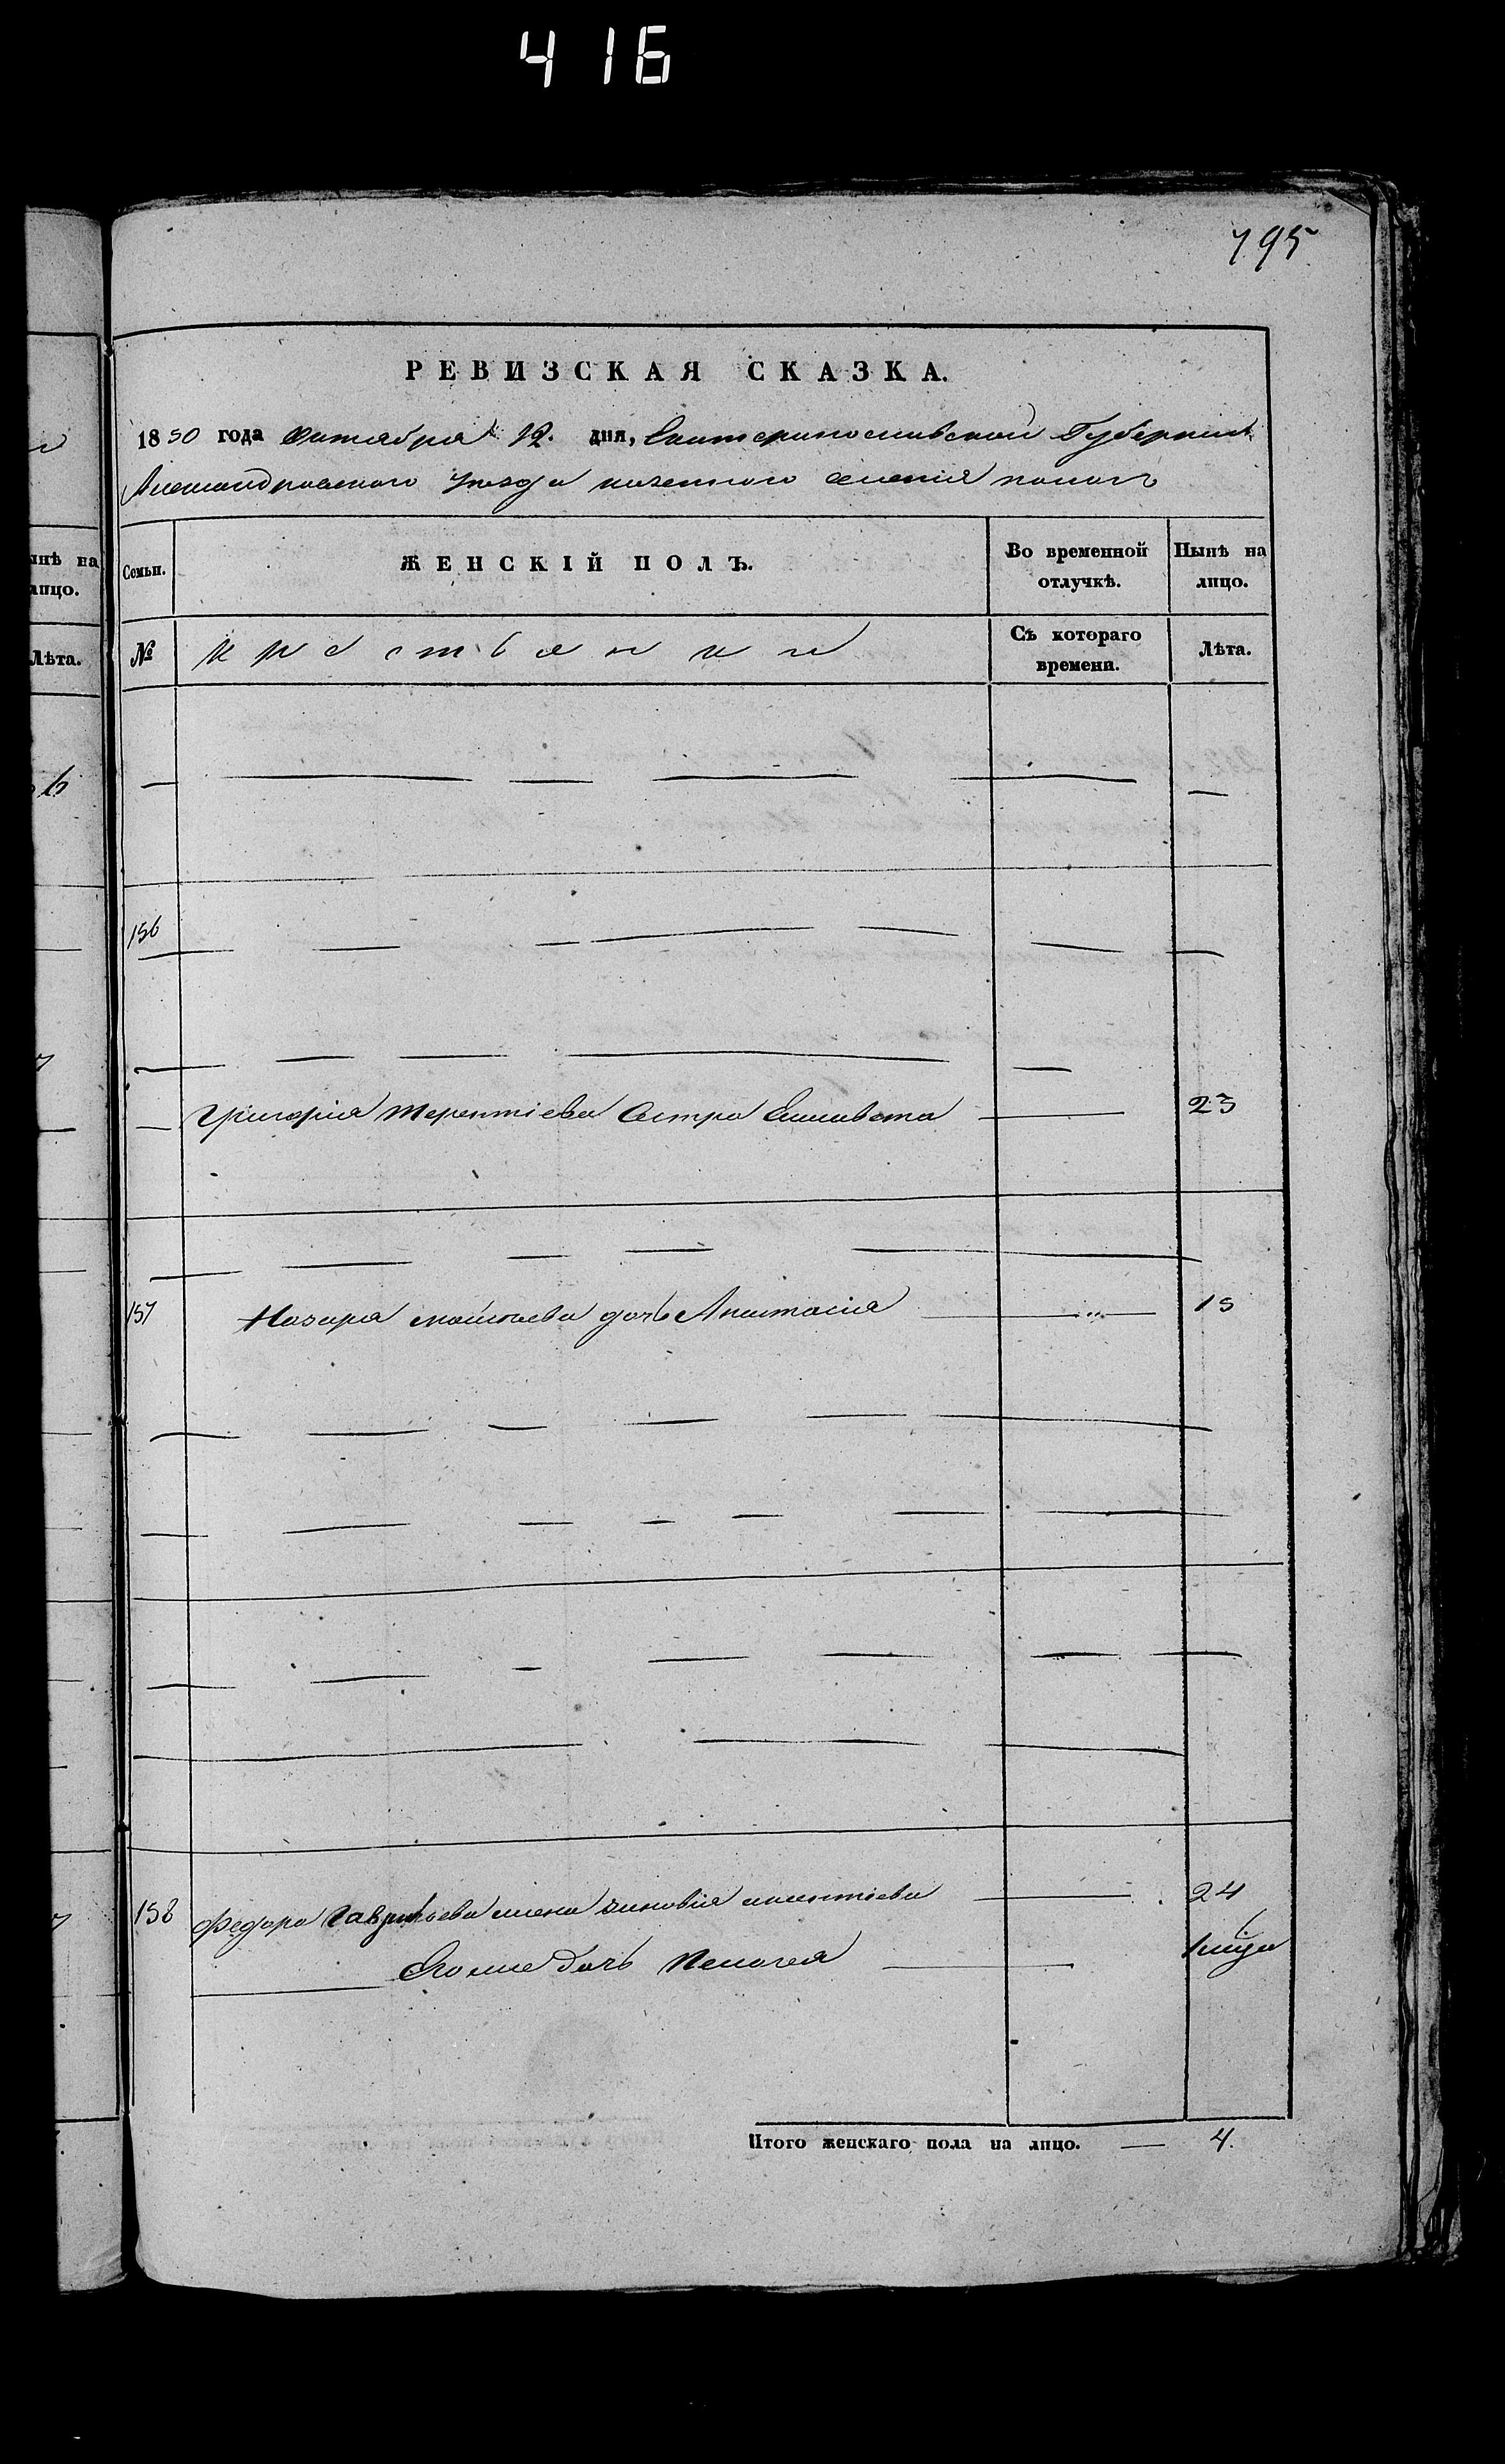 416
795
РЕВИЗСКАЯ СКАЗКА.
1850 года Октября 12. дня, Екатеринославской Губернии
Александровского уезда казенного селения
Семьи. ЖЕНСКІЙ ПОЛЪ. Во временной отлучкѣ. Нынѣ на лицо.
№ крестьянки Съ котораго времени. Лѣта.
ынѣ на
лицо.
Лѣта.
156
Григория Терентиева сестра Елисавета 23
157 Назара дочь Анастасия 15
158 Федора Гаврильева жена Зиновия 24
Его же дочь Пелагея
Итого женскаго пола на лицо. — 4.